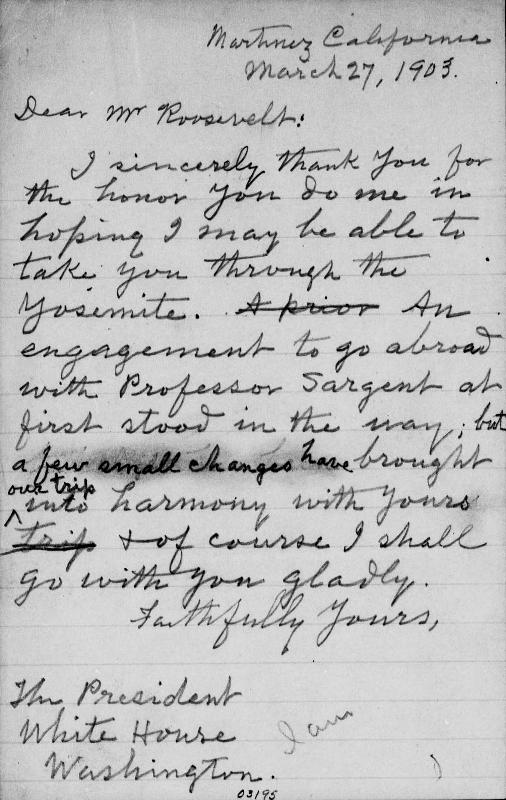 Martinez California
March 27, 1903.
Dear Mr Roosevelt:
I sincerely thank you for
the honor you do me in
hoping I may be able to
take you through the
Yosemite. A prior An
engagement to go abroad
with Professor Sargent at
first stood in the way; but
a few small changes have brought
our trip
into harmony with yours
trip & of course I shall
go with you gladly.
Faithfully Yours,
The President
White House
I am
Washington.
03195